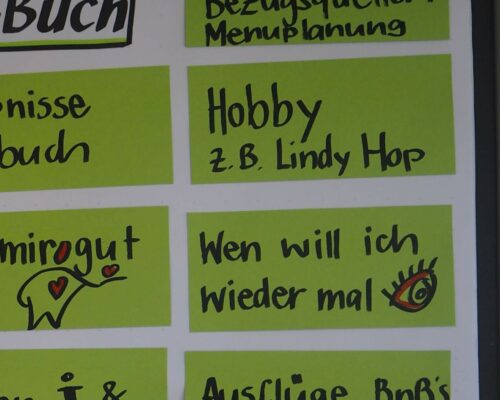 Buch
Menuplanung
nisse
buch
Hobby
z.B. Lindy Hop
mir gut
Wen will ich
wieder mal
&
Ausflüge BnB's